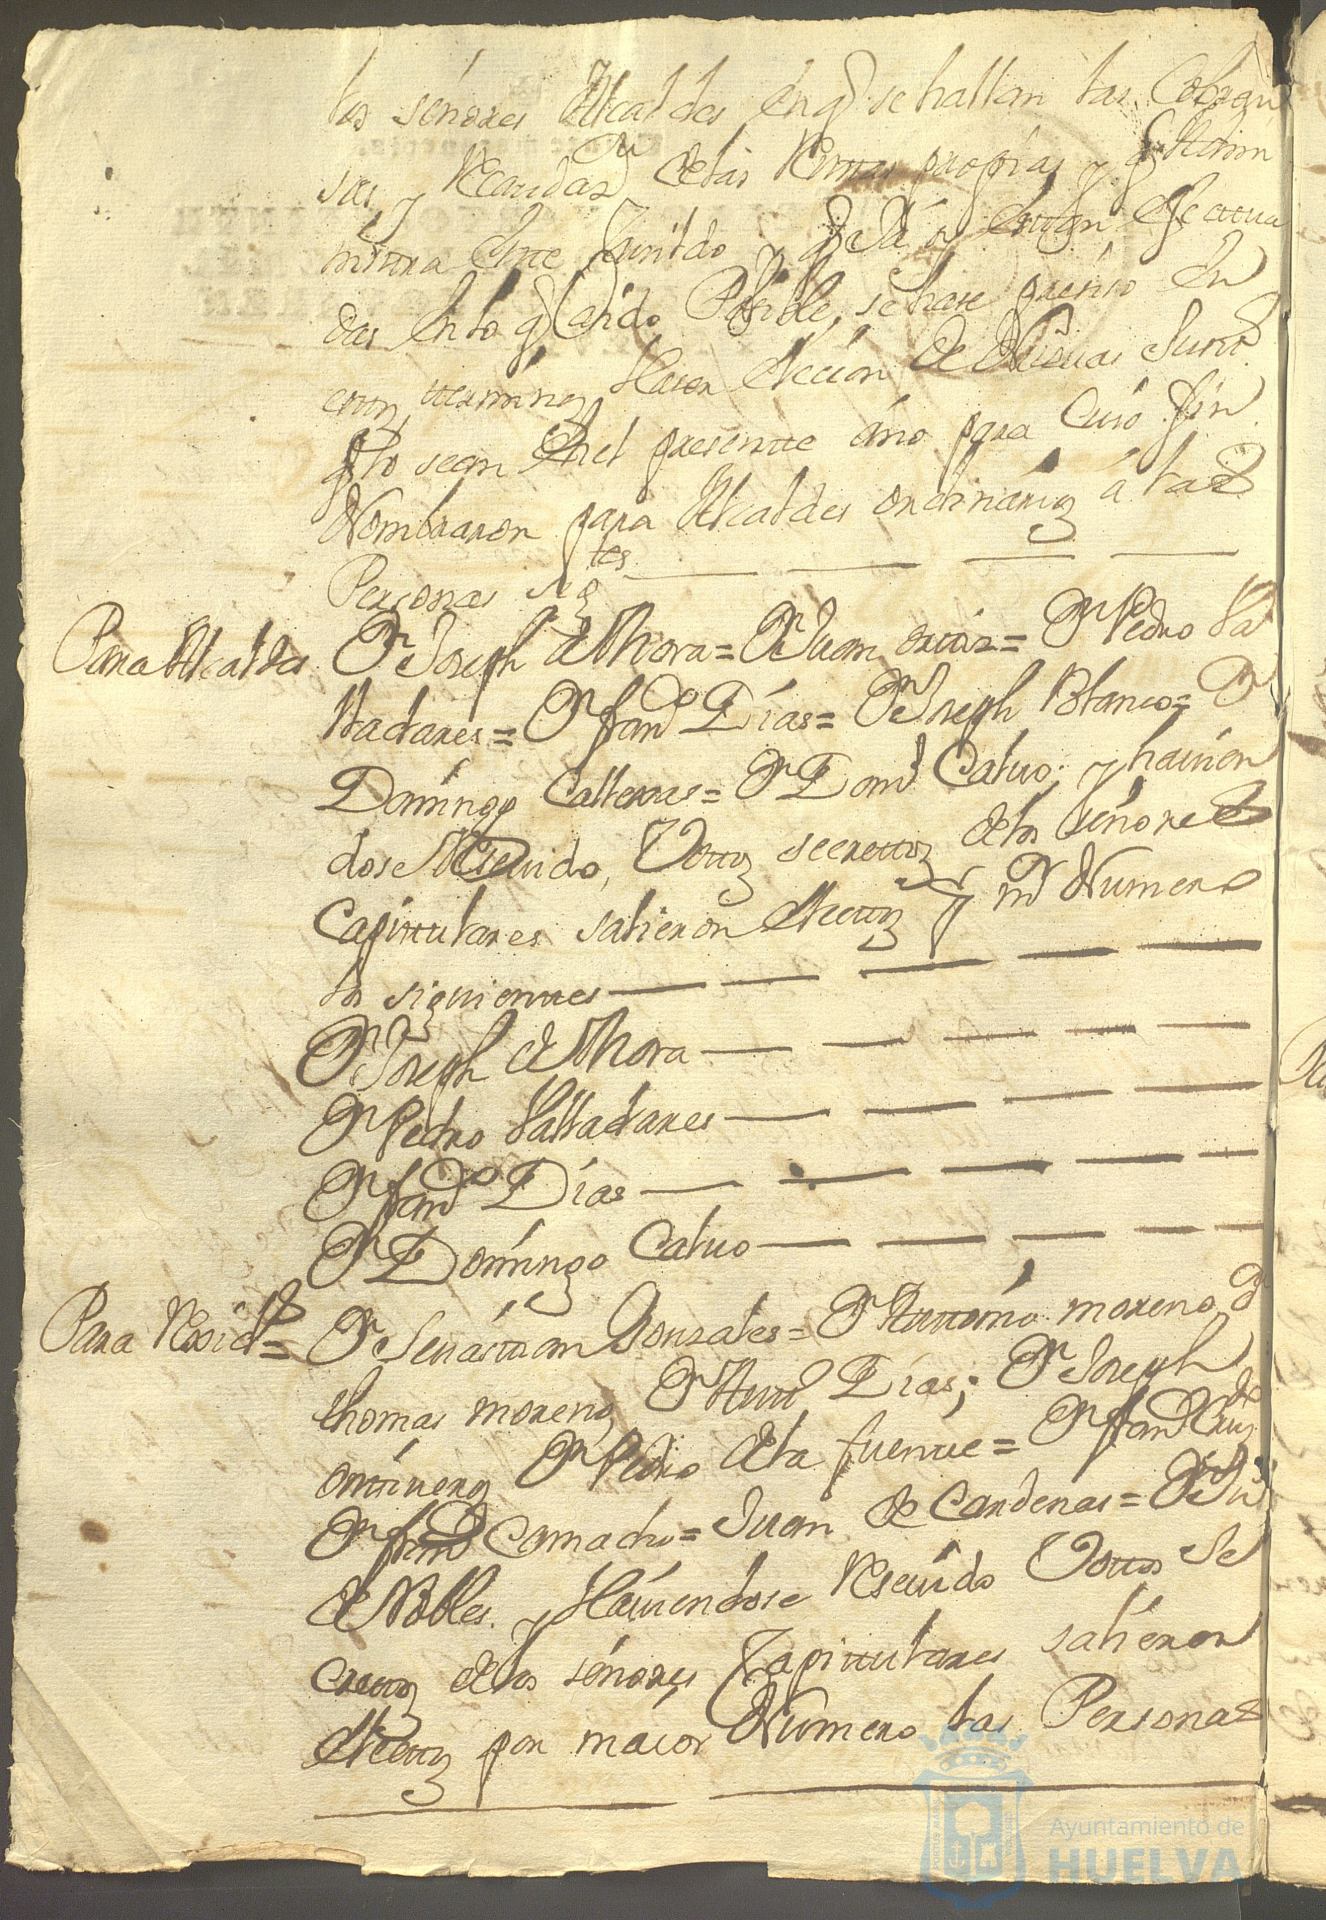 los señores Alcaldes en q se hallan las Cobran
sas, y Recaudaz.n de las Rentas propias y q Admi
nistra este Cavildo y q
das en lo q a sido Posible, se hase preciso en
estos terminos Haser Elecion de Nuebas
q lo sean en el presente año para Cuio fin
Nombraron para Alcaldes ordinarios á las
Personas sig.tes
Para Alcaldes
D.n Joseph de Mora = D.n Juan = D.n Pedro Va
lladares = D.n Fran.co Días = D.n Joseph Blanco = D.n
Domingo = D.n Dom.o Calvo; y havien
dose Resevido, Votos secretos de los señores
Capitulares salieron Electos y Numero
los siguientes
D.n Joseph de Mora
D.n Pedro Valladares
D.n Fran.co Días
D.n Domingo Calvo
Para Rexid.s =
D.n Sevastian Gonzales = D.n Antonio moreno, D.n
thomas moreno, D.n Días; D.n Joseph
D.n Pedro de la fuente = D.n Fran.co
D.n Fran.co Camacho = Juan de Cardenas = D.n
de Robles. y Haviendose Resevido Votos Se
cretos de los señores Capitulares salieron
Electos por maior Numero las Personas
Ayuntamiento de
HUELVA